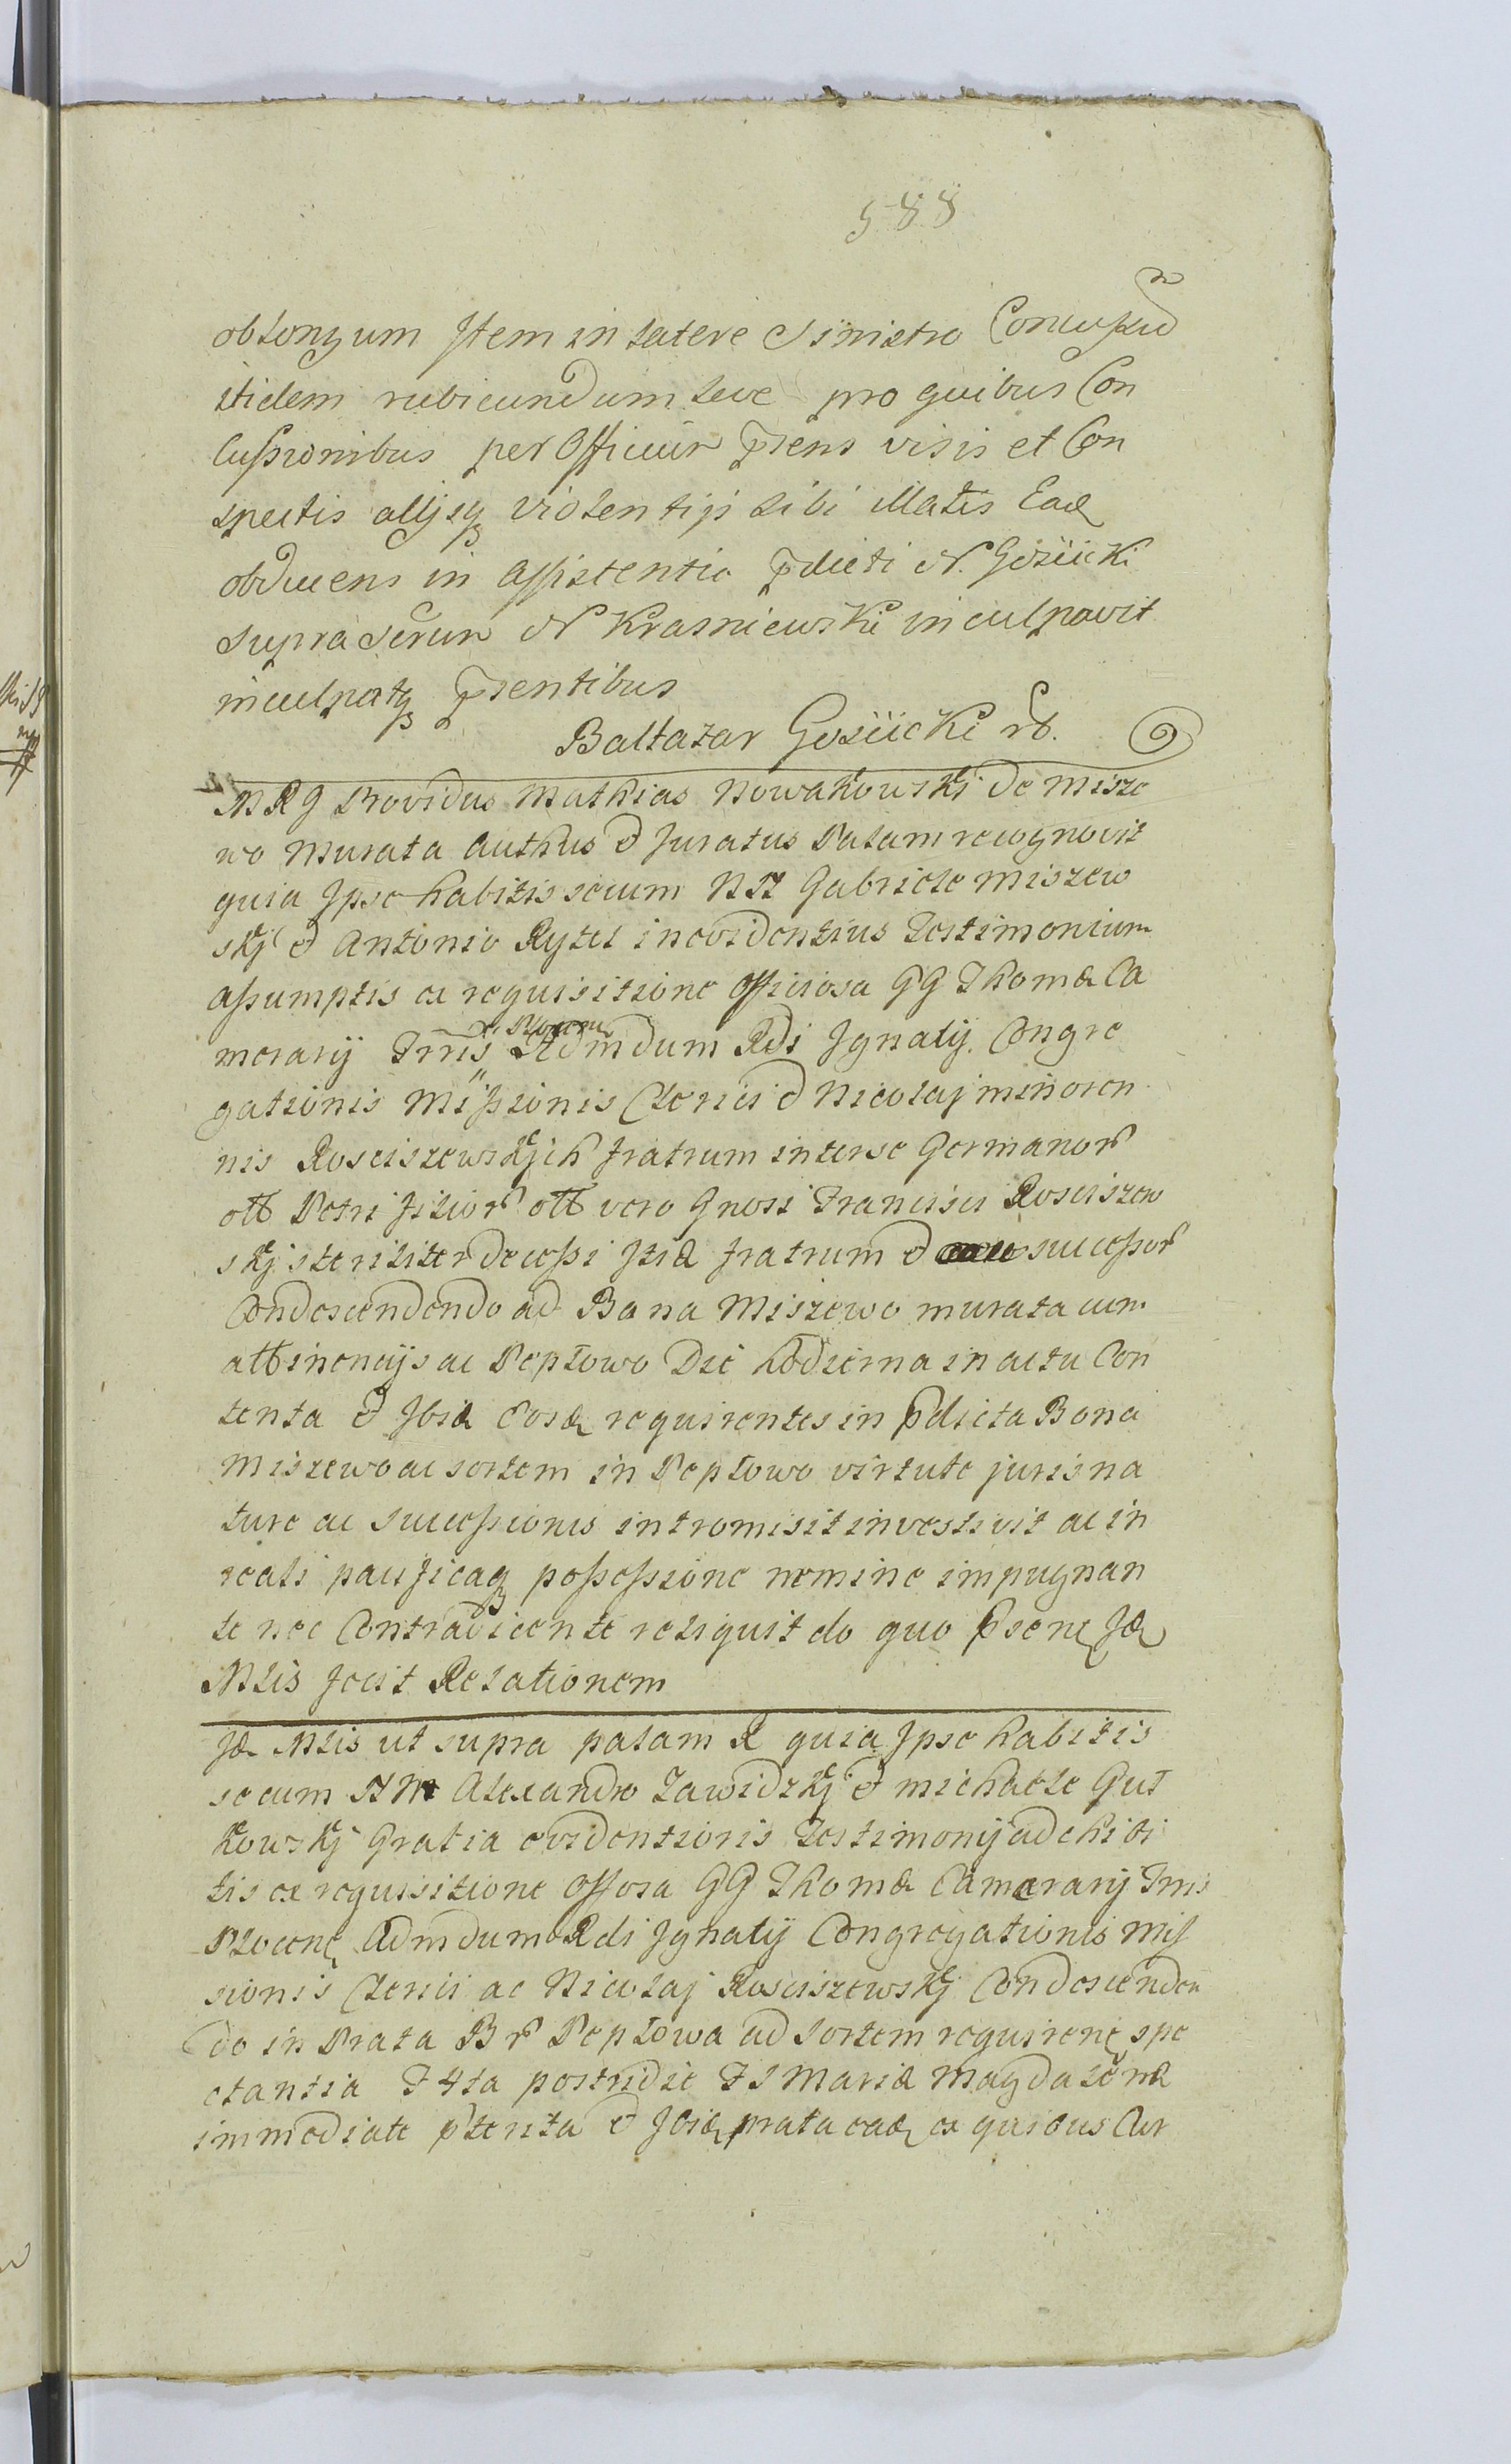 588
oblongum Item in latere Sinistro Concussu
itidem rubicundum leve pro quibus Con
cussionibus per Officium prens visis et Con
spectis alijsq violentijs sibi illatis Ead
obducens in Assistentia pdicti N. Gosiicki
supra Scrun N Krasniewski inculpavit
inculpatq prsentibus
Baltazar Gosiicki
M R G Providus Mathias Nowakowski de Misze
wo Murata Authus et Juratus Palam recognovit
quia Ipse habitis secum NN Gabriele Miszew
skj et Antonio Rytel in evidentius Testimonium
assumptis ex requisitione Officiosa GG Thomæ Ca
merarij Trris Plocen Admdum Rdi Ignatij Congre
gationis Missionis Clerici et Nicolaj minoren
nis Rosciszewskjch fratrum interse Germanor
olt Petri filior olt vero Gnosi Francisci Rosciszew
skj steriliter decessi ftrd fratrum et successor
Condescendendo ad Bona Miszewo murata cum
attinencijs ac Peplowo Die hodierna in actu Con
tenta et Ibid Eosd requirentes in pdicta Bona
Miszewo ac sortem in Peplowo virtute juris na
ture ac Successionis intromisit investivit ac in
reali pacificaq possessione nemine impugnan
te nec Contradicente reliquit de quo psene Id
Mlis fecit Relationem
Id Mlis ut supra palam R quia Ipse habitis
secum NN Alexandro Zawidzkj et Michaele Gut
kowskj Gratia evidentioris Testimonij adchibi
tis ex requisitione Offosa GG Thomæ Camerarij Trris
Plocene Admdum Rdi Ignatij Congregationis Mis
sionis Clerici ac Nicolaj Rosciszewskj Condescenden
do in Prata B r Peplowa ad Sortem requirene spe
ctantia F 4ta postridie F S Mariæ Magdalenæ
immediate pterita et Ibid prata ead ex quibus Cur